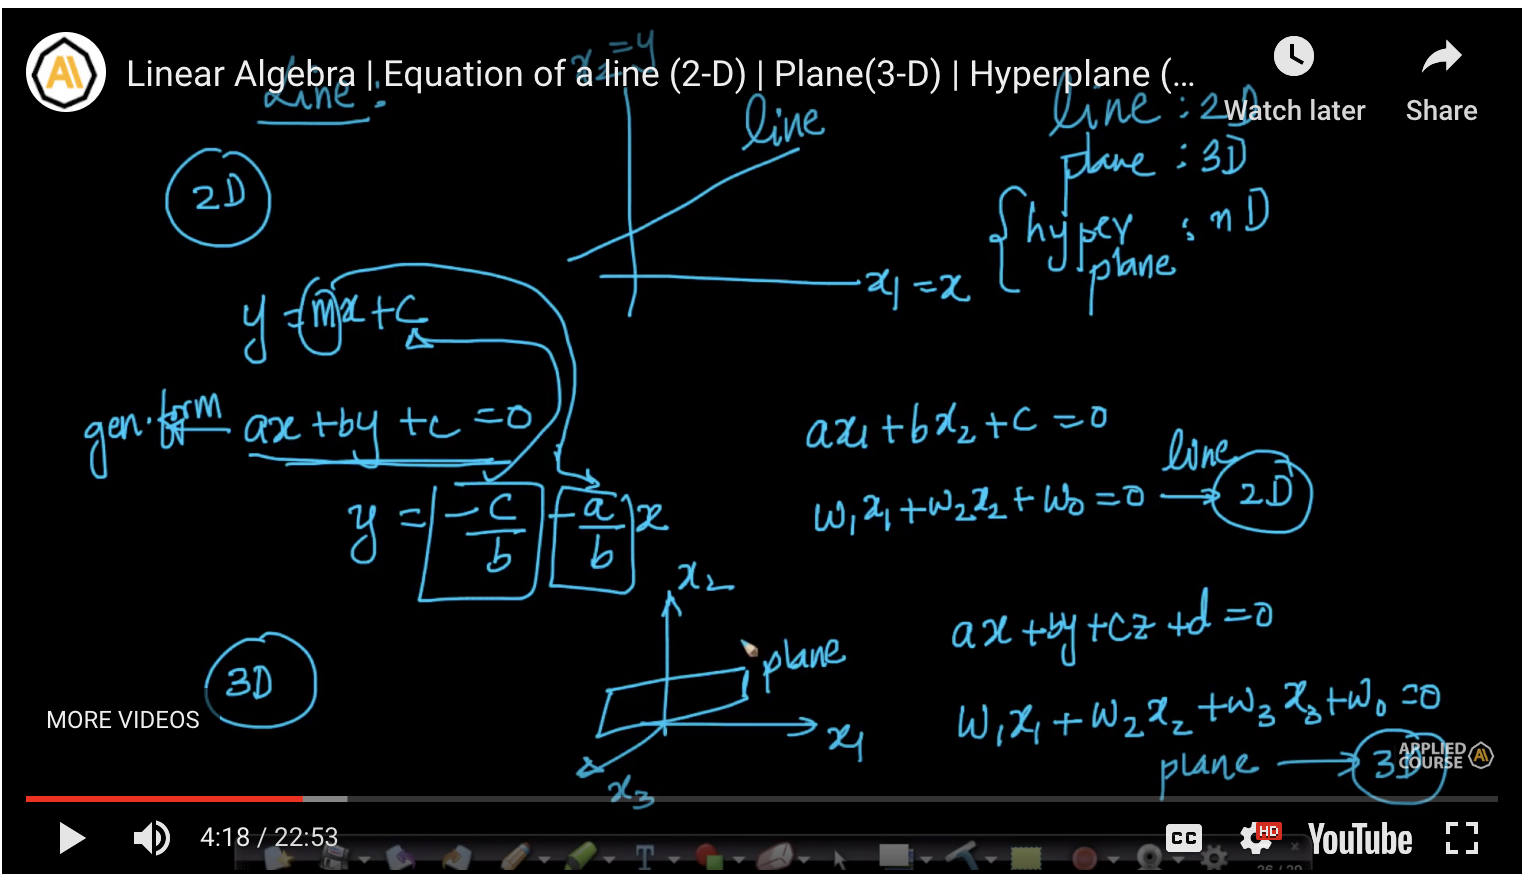 Linear Algebra | Equation of a line (2-D) | Plane(3-D) | Hyperplane (...
Watch later
Share
Line :
x₂ = y
line
line : 2D
plane : 3D
hyper plane : nD
2D
x₁ = x
y = mx + c
gen. form ← ax + by + c = 0
y = -c/b -a/b x
ax₁ + bx₂ + c = 0
line
w₁x₁ + w₂x₂ + w₀ = 0 → 2D
3D
x₂
plane
x₁
x₃
ax + by + cz + d = 0
w₁x₁ + w₂x₂ + w₃x₃ + w₀ = 0
plane → 3D
MORE VIDEOS
APPLIED
COURSE
4:18 / 22:53
CC
HD
YouTube
T